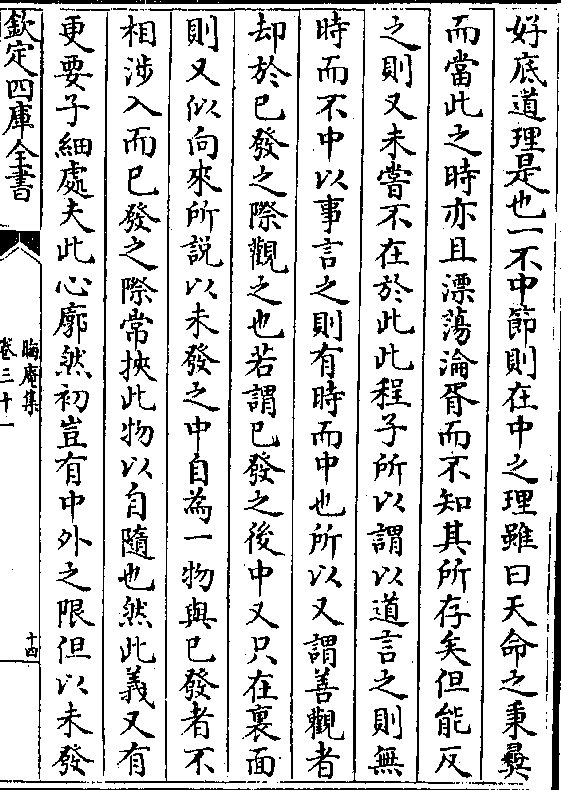 好底道理是也一不中節則在中之理雖曰天命之秉彞
而當此之時亦且漂蕩淪胥而不知其所存矣但能反
之則又未嘗不在於此此程子所以謂以道言之則無
時而不中以事言之則有時而中也所以又謂善觀者
却於已發之際觀之也若謂已發之後中又只在裏面
則又似向來所説以未發之中自為一物與已發者不
相涉入而已發之際常挾此物以自隨也然此義又有
更要子細處夫此心廓然初豈有中外之限但以未發
欽定四庫全書
晦庵集
卷三十一
十四